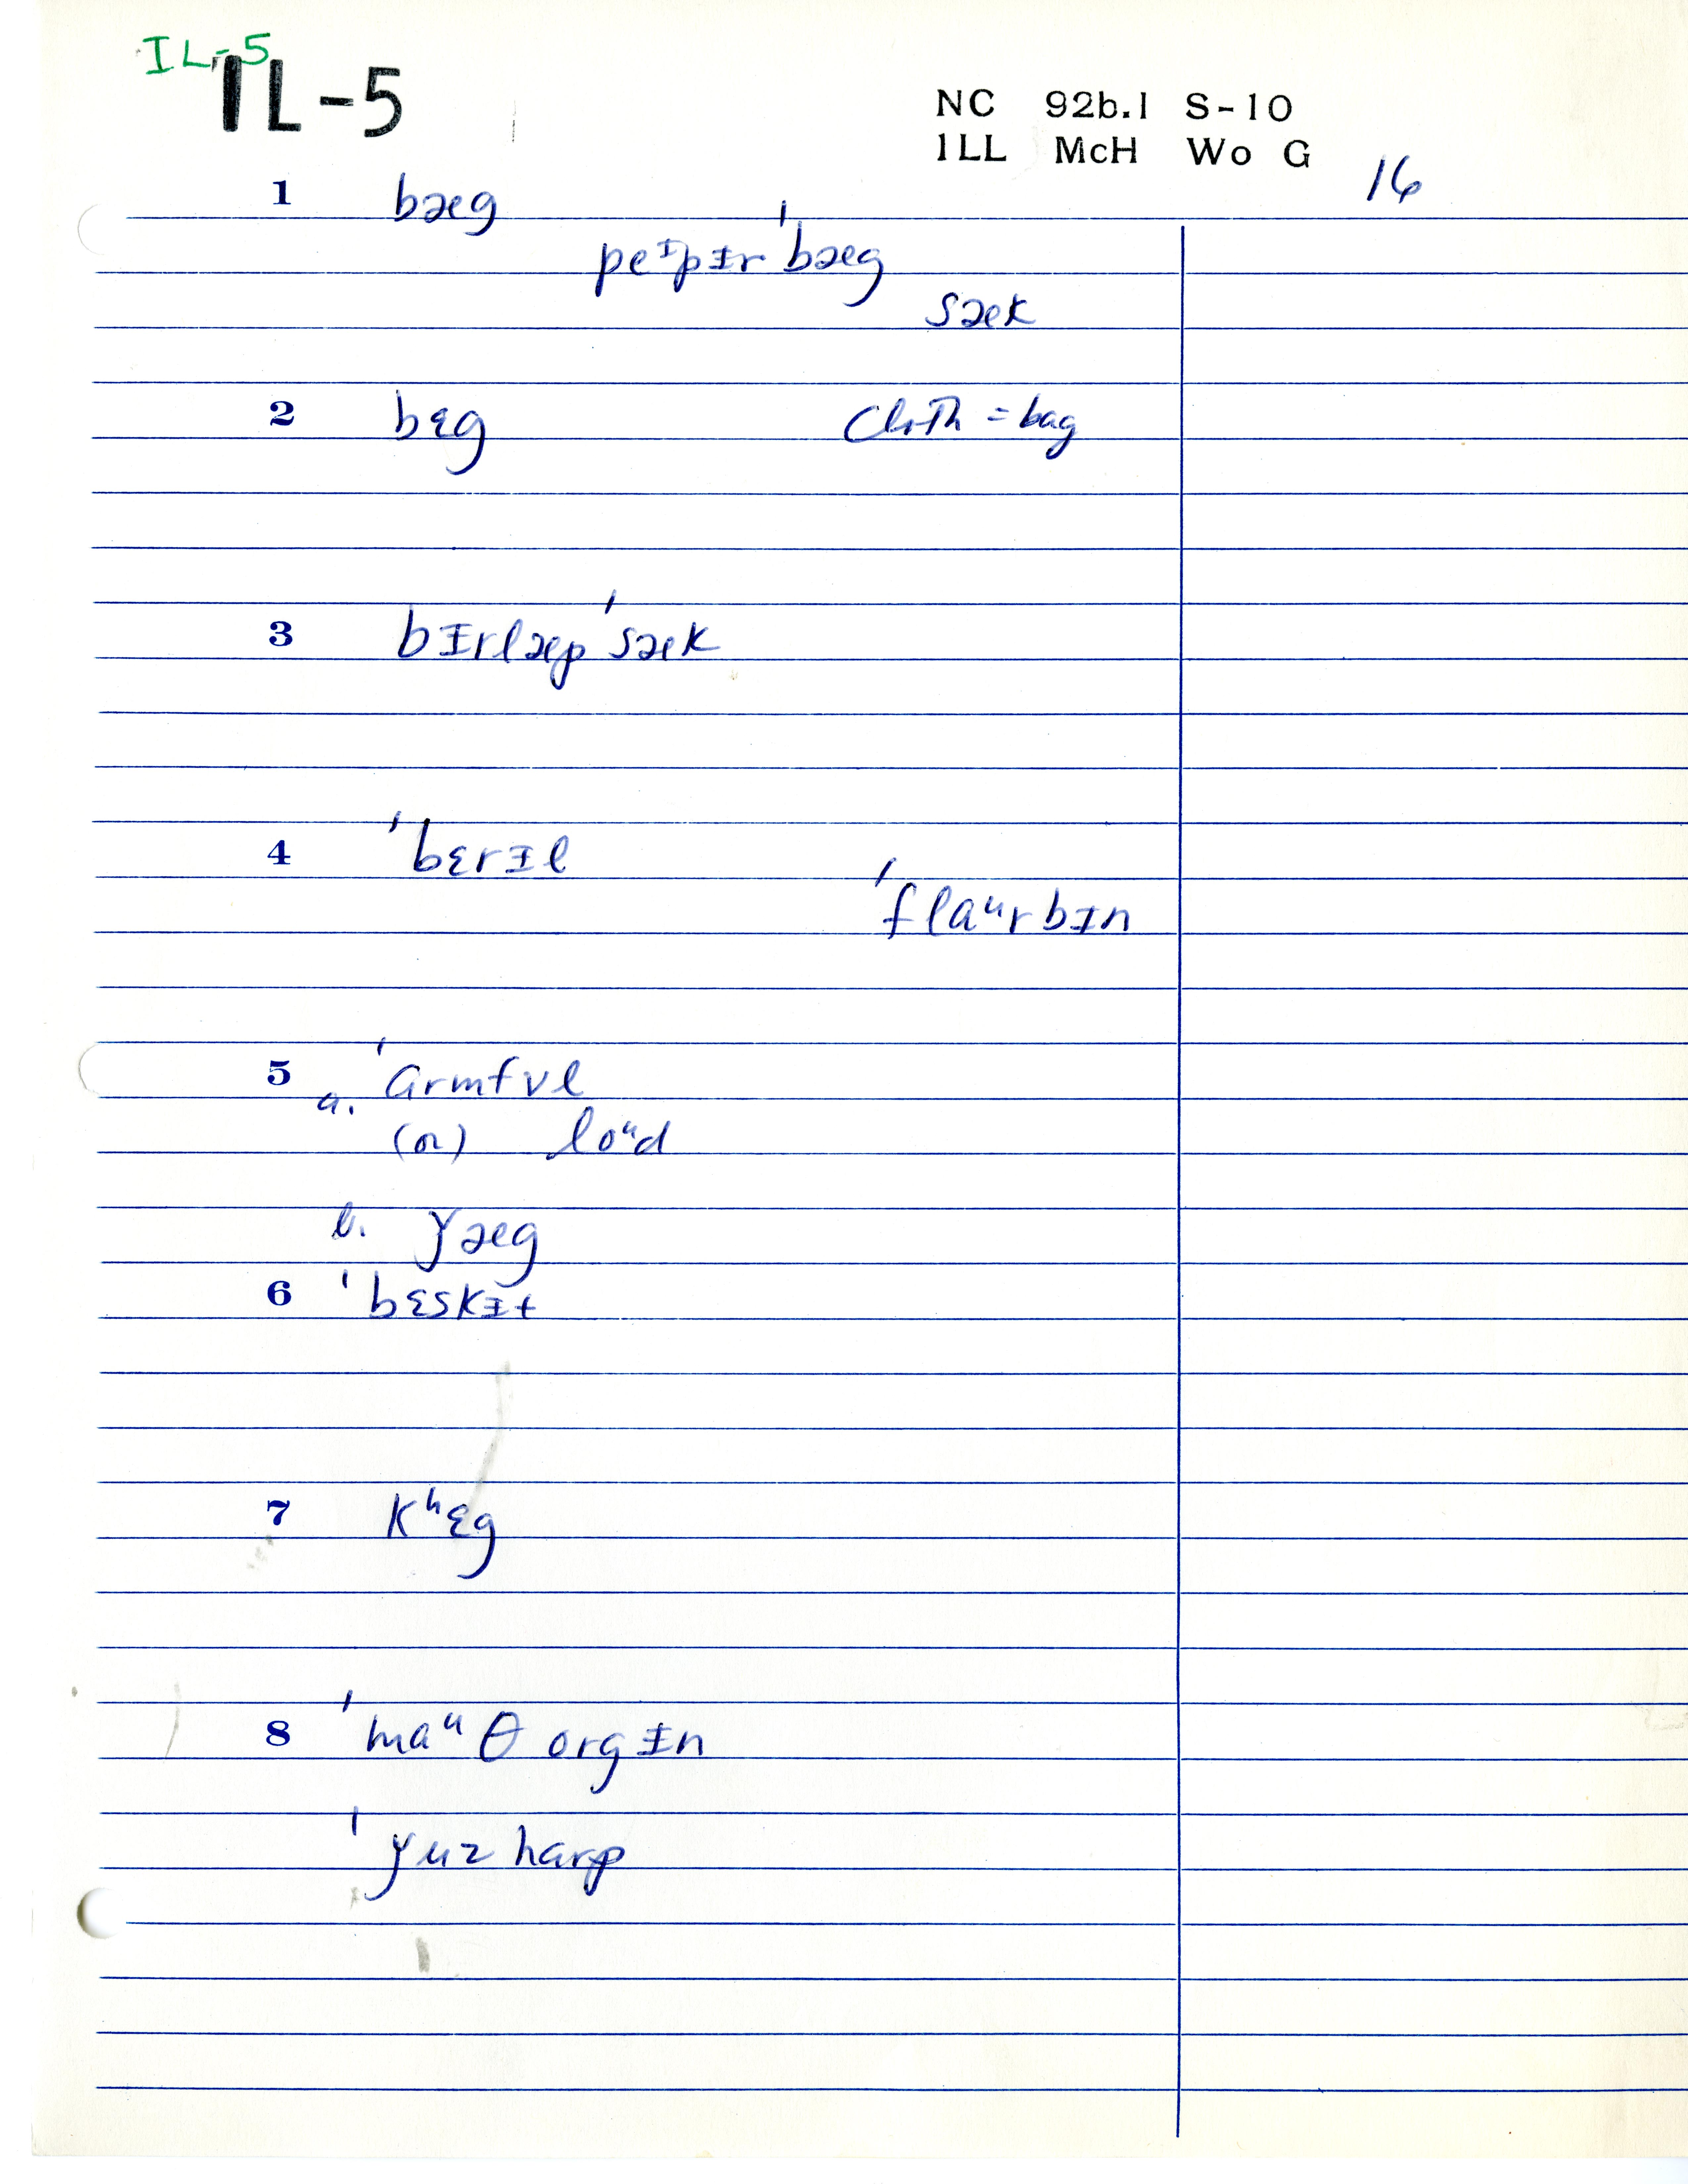 IL-5
IL-5
NC 92b.1 S-10
ILL McH Wo G
16
1 bæg
peᶦpɪr ˈbæg
sæk
2 bɛg Cloth = bag
3 bɪrlæp ˈsæk
4 ˈbɛrɪl
ˈflaᵘrbɪn
5 a. ˈarmfʊl
(or) loᵘd
b. ǰæg
6 ˈbɛskɪt
7 kʰɛg
8 ˈmaᵘθ orgɪn
ˈǰuz harp